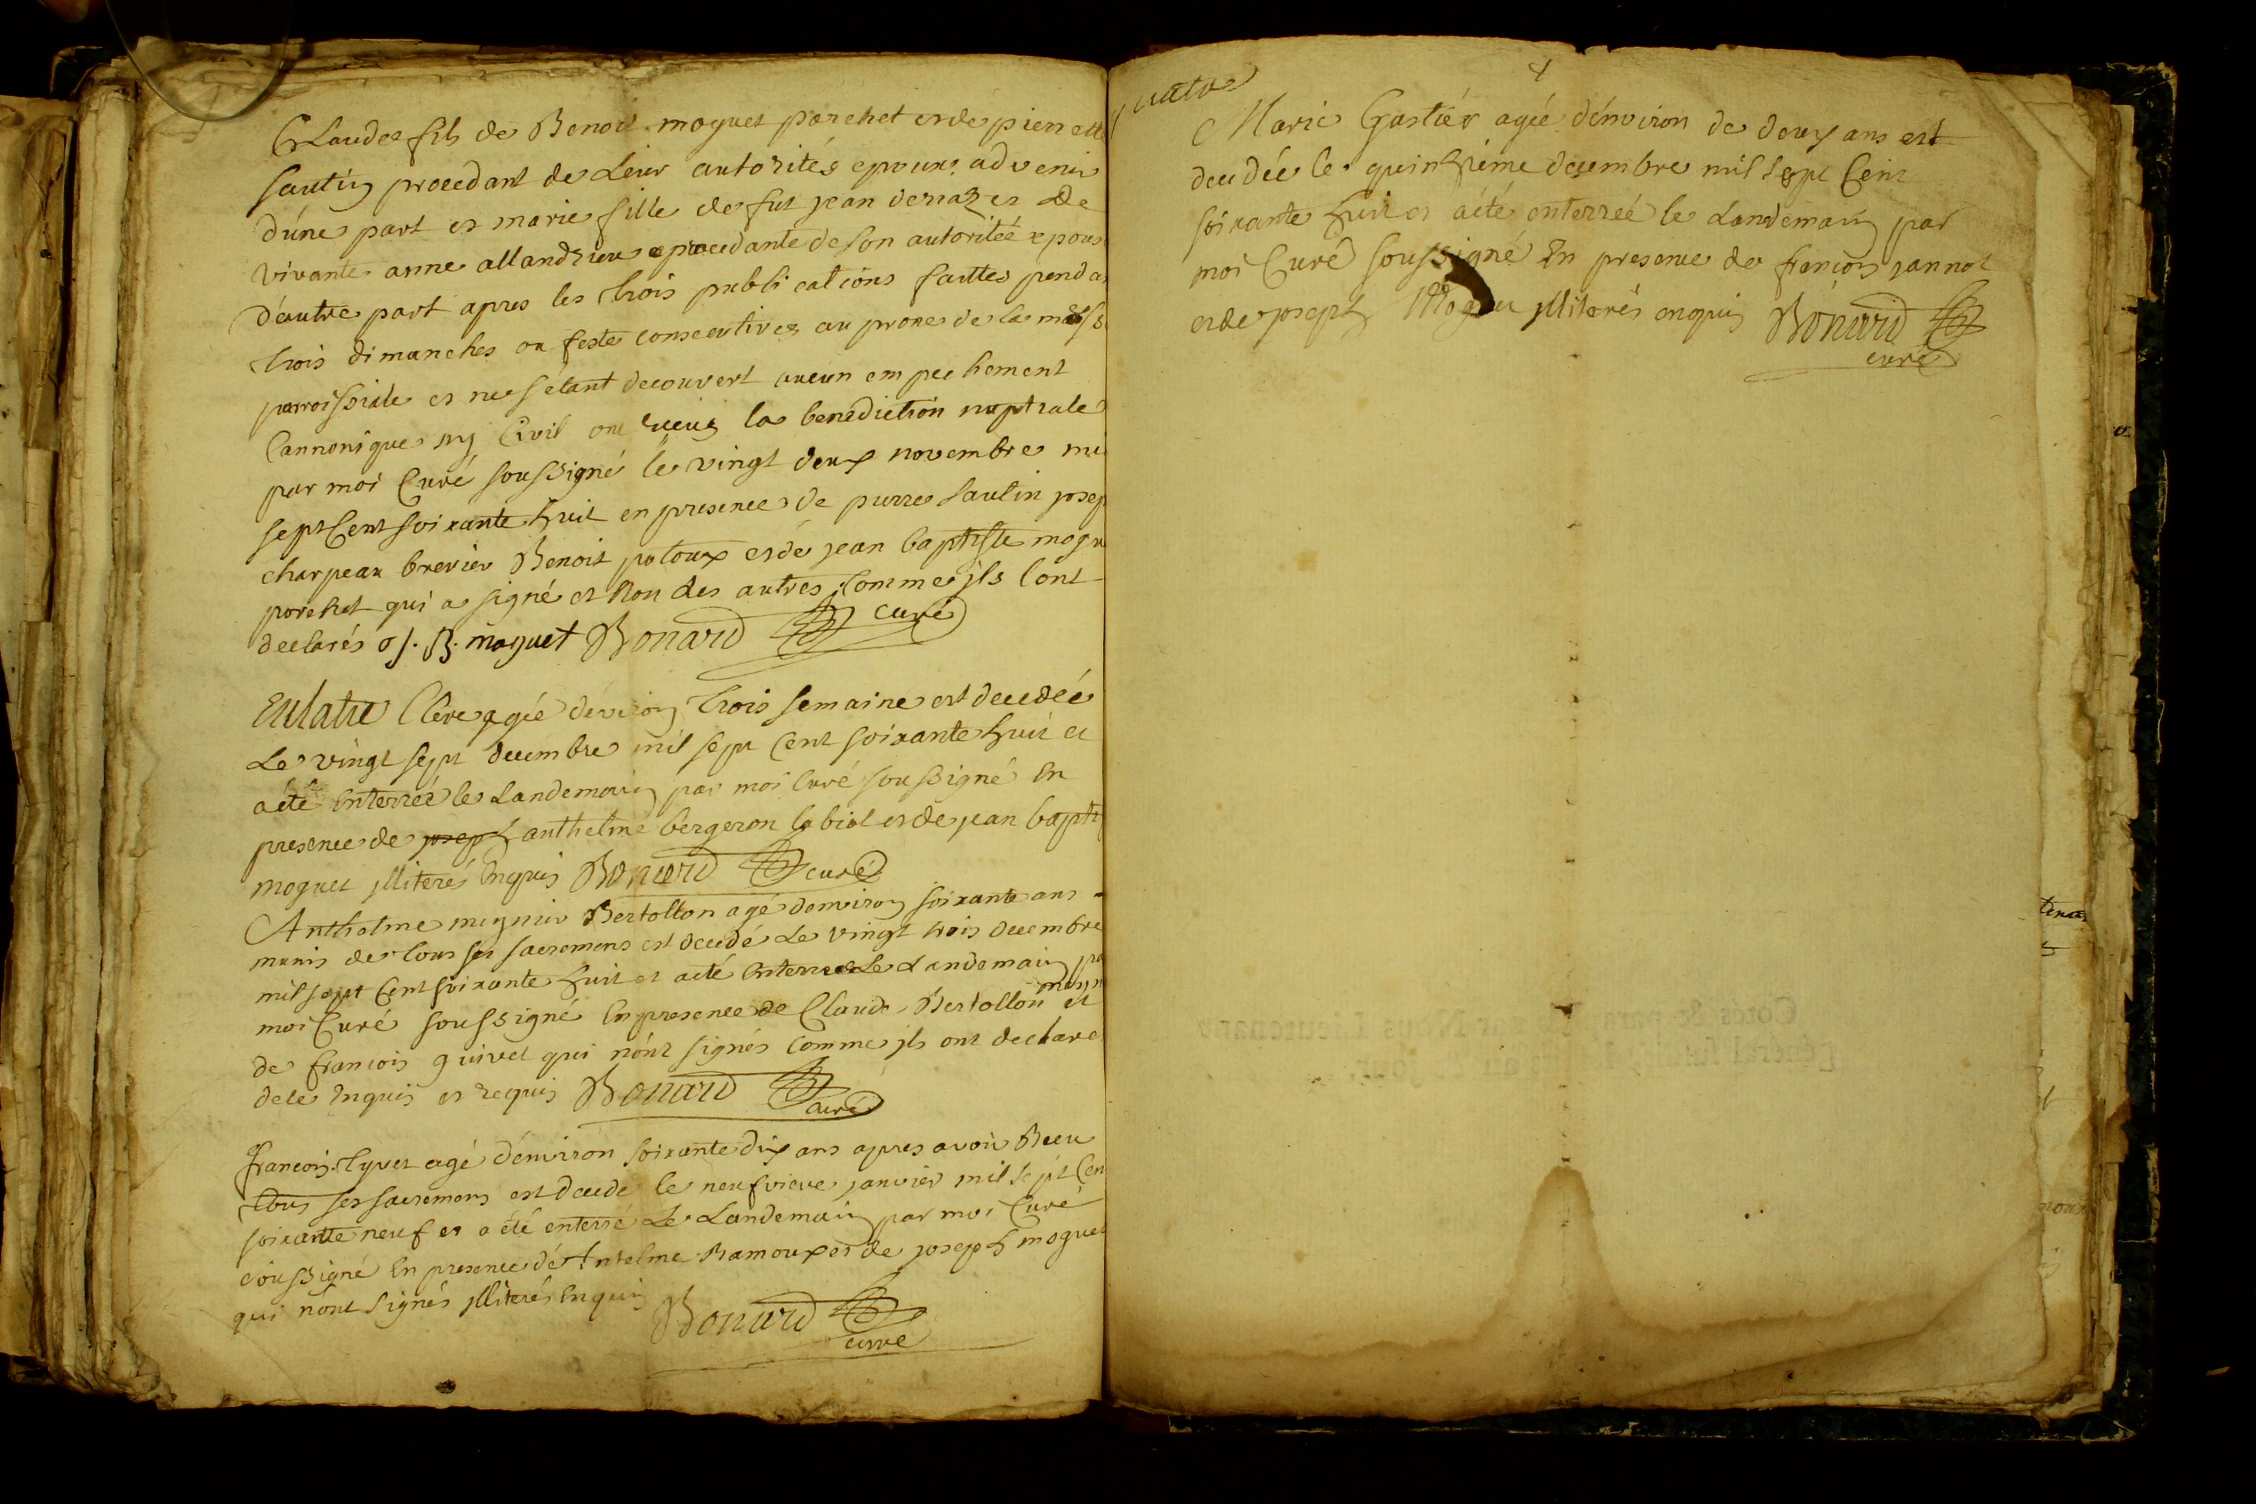 Claude fils de Benoit moguet porchet et de pierrette
sautin procedant de Leur autorités epoux advenir
d'une part et marie fille de fut jean derraz et de
vivante anne allandrieu procedante de son autoritée epouse
d'autre part apres les trois publications faittes penda
trois dimanches ou feste consecutives au prone de la mess
parroissiale et ne s'etant decouvert aucun empechement
Cannonique ny Civil ont reçus la benediction nuptiale
par moi Curé soussigné le vingt deux novembre mil
sept Cent soixante huit en presence de pierre sautin josep
charpeau brevier Benoit patoux et de jean baptiste mogu
porchet qui a signé et Non des autres Comme jls l'ont
declarés J. B. moguet Bonard curé
Eulalie Clere agée d'eviron trois semaine est decedée
Le vingt sept decembre mil sept Cent soixante huit et
a été Enterrée le Landemain par moi Curé soussigné En
presence de joseph anthelme bergeron labiol et de jean bapti
moguet jlliterés Enquis Bonard curé
Anthelme meynier Bertollon agé d'environ soixante ans
munis de tous ses sacremens est decedé Le vingt trois decembre
mil sept Cent soixante huit et a été Enterré Le Landemain par
moi Curé soussigné En presence de Claude Bertollon et
de francois guivet qui n'ont signés Comme jls ont declare
de le Enquis et requis Bonard curé
francois Tyvet agé d'environ soixante dix ans apres avoir Recu
tous ses sacremens est decedé le neufvieme janvier mil sept Cen
soixante neuf et a été enterré Le Landemain par moi Curé
soussigné En presence de Antelme Ramoux et de joseph moguet
qui n'ont signés jlliterés Enquis Bonard
curé
4
quatre
Marie Gastier agée d'environ de deux ans est
decedée le quinzieme decembre mil sept Cent
soixante huit et a été enterrée le Landemain par
moi Curé soussigné En presence de francois jannot
et de joseph Moguet jlliterés enquis Bonard
curé